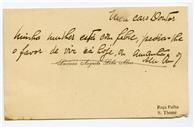 Meu caro Doutor
Minha mulher está com febre, pedia-lhe
o favor de vir cá hoje, ou amanhã
Roça Fulha
S. Thomé